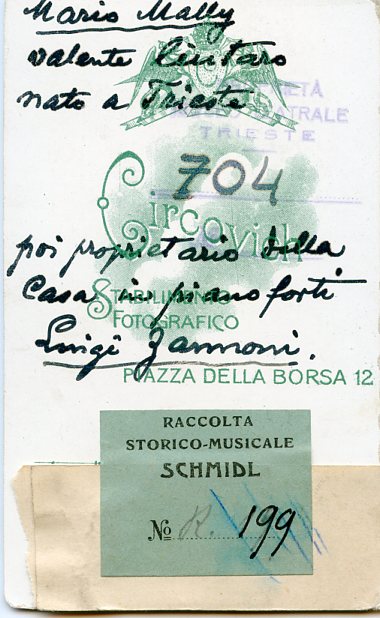 Mario Mally
valente liutaro
nato a Trieste
TRIESTE
704
Circovich
poi proprietario della
Casa in piano forti
STABILIMENTO
FOTOGRAFICO
Luigi Zannoni.
PIAZZA DELLA BORSA 12
RACCOLTA
STORICO-MUSICALE
SCHMIDL
No R. 199